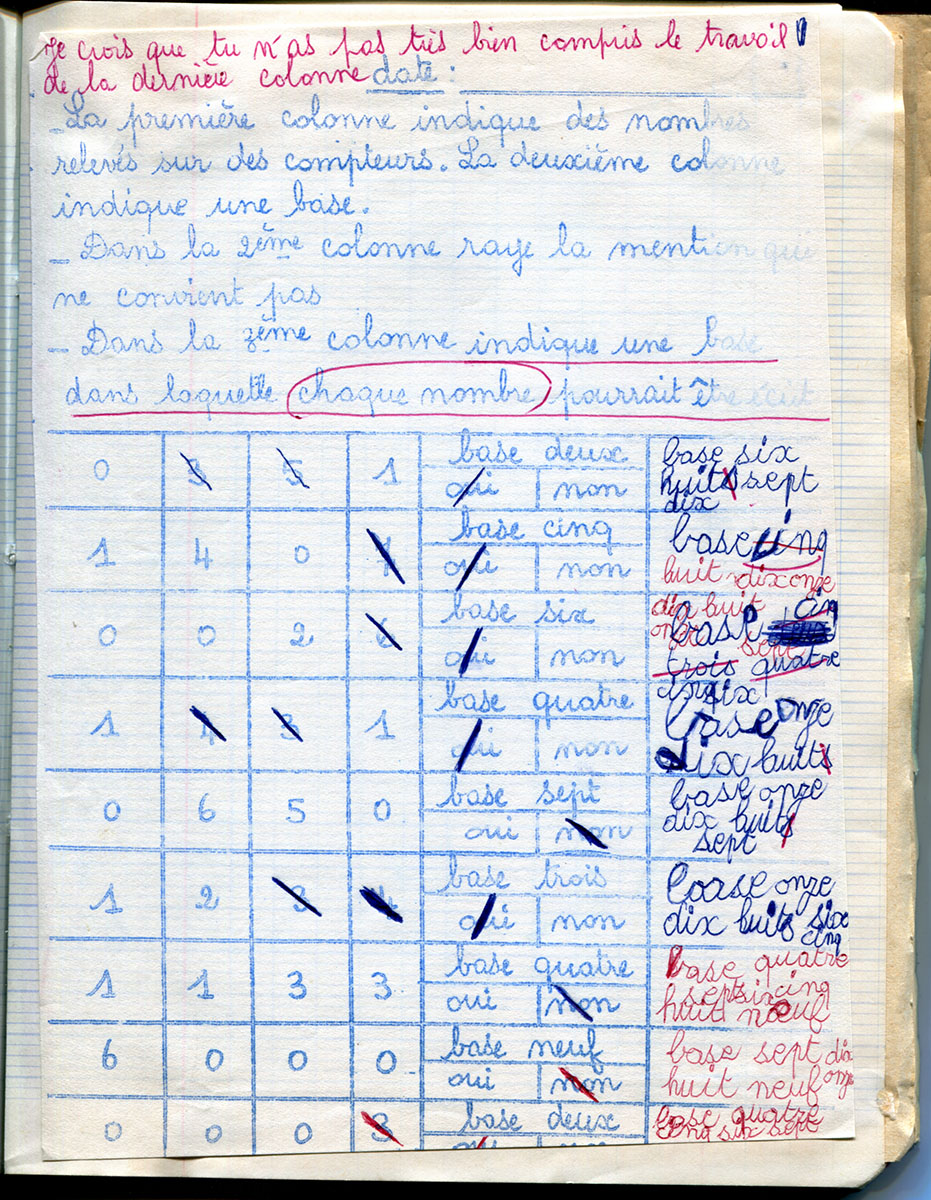 Je crois que tu n'as pas très bien compris le travail
de la dernière colonne date :
_ La première colonne indique des nombres
relevés sur des compteurs. La deuxième colonne
indique une base.
_ Dans la 2ème colonne raye la mention qui
ne convient pas
_ Dans la 3ème colonne indique une base
dans laquelle chaque nombre pourrait être écrit
0 3 5 1 base deux base six
oui non huit sept
dix
1 4 0 base cinq base cinq
oui non huit dix onze
0 0 2 6 base six dix huit cinq
oui non onze base sept
trois quatre
cinq six
1 4 3 1 base quatre base onze
oui non dix huit
0 6 5 0 base sept base onze
oui non dix huit
sept
1 2 3 4 base trois base onze
oui non dix huit six
cinq
1 1 3 3 base quatre base quatre
oui non sept six cinq
huit neuf
6 0 0 0 base neuf base sept dix
oui non huit neuf onze
0 0 0 3 base deux base quatre
oui non cinq six sept